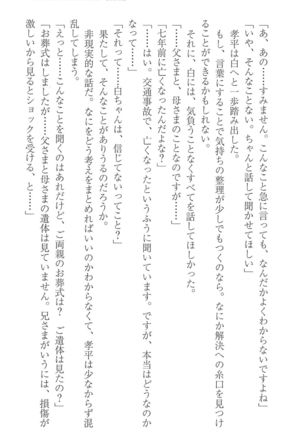 「あ、あの……すみません。こんなこと急に言っても、なんだかよくわからないですよね」
「いや、そんなことない。ちゃんと話して聞かせてほしい」
孝平は白へと一歩踏み出した。
もし、言葉にすることで気持ちの整理が少しでもつくのなら。なにか解決への糸口を見つけ
ることができるかもしれない。
それに、白には、気負うことなくすべてを話してほしかった。
「……父さまと、母さまのことなのですが……」
「七年前に亡くなったんだよな？」
「……はい。交通事故で、亡くなったというふうに聞いています。ですが、本当はどうなのか
なって……」
「それって……白ちゃんは、信じてないってこと？」
果たして、そんなことがありうるのだろうか。
非現実的な話だ。なにをどう考えをまとめればいいのかわからなくて、孝平は少なからず混
乱してしまう。
「えっと……こんなことを聞くのはあれだけど、ご両親のお葬式は？　ご遺体は見たの？」
「お葬式はしましたが……父さまと母さまの遺体は見ていません。兄さまがいうには、損傷が
激しいから見るとショックを受ける、と……」